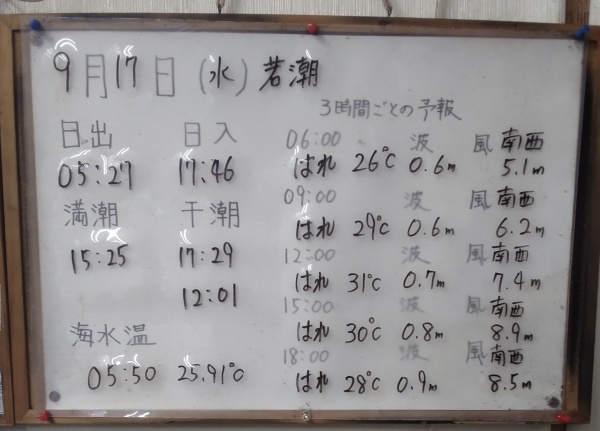 9月17日(水)若潮
日出 日入
05:27 17:46
満潮 干潮
15:25 17:29
12:01
海水温
05:50 25.91℃
3時間ごとの予報
06:00 波 風 南西
はれ 26℃ 0.6m 5.1m
09:00 波 風 南西
はれ 29℃ 0.6m 6.2m
12:00 波 風 南西
はれ 31℃ 0.7m 7.4m
15:00 波 風 南西
はれ 30℃ 0.8m 8.9m
18:00 波 風 南西
はれ 28℃ 0.9m 8.5m